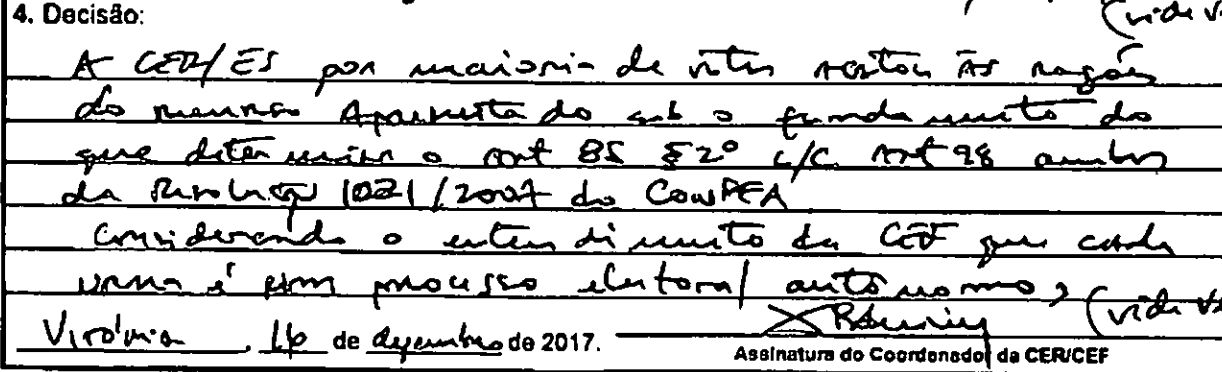 (vide v
4. Decisão:
A CER/ES por maioria de votos as razões
do apresentado sob o fundamento do
que determina o art 85 §2º c/c art 98 ambos
da Resolução 1021/2007 do CONFEA
Considerando o entendimento da CEF que cada
urna é um processo eleitoral autônomo, (vide v
Vitória, 16 de dezembro de 2017.
Assinatura do Coordenador da CER/CEF